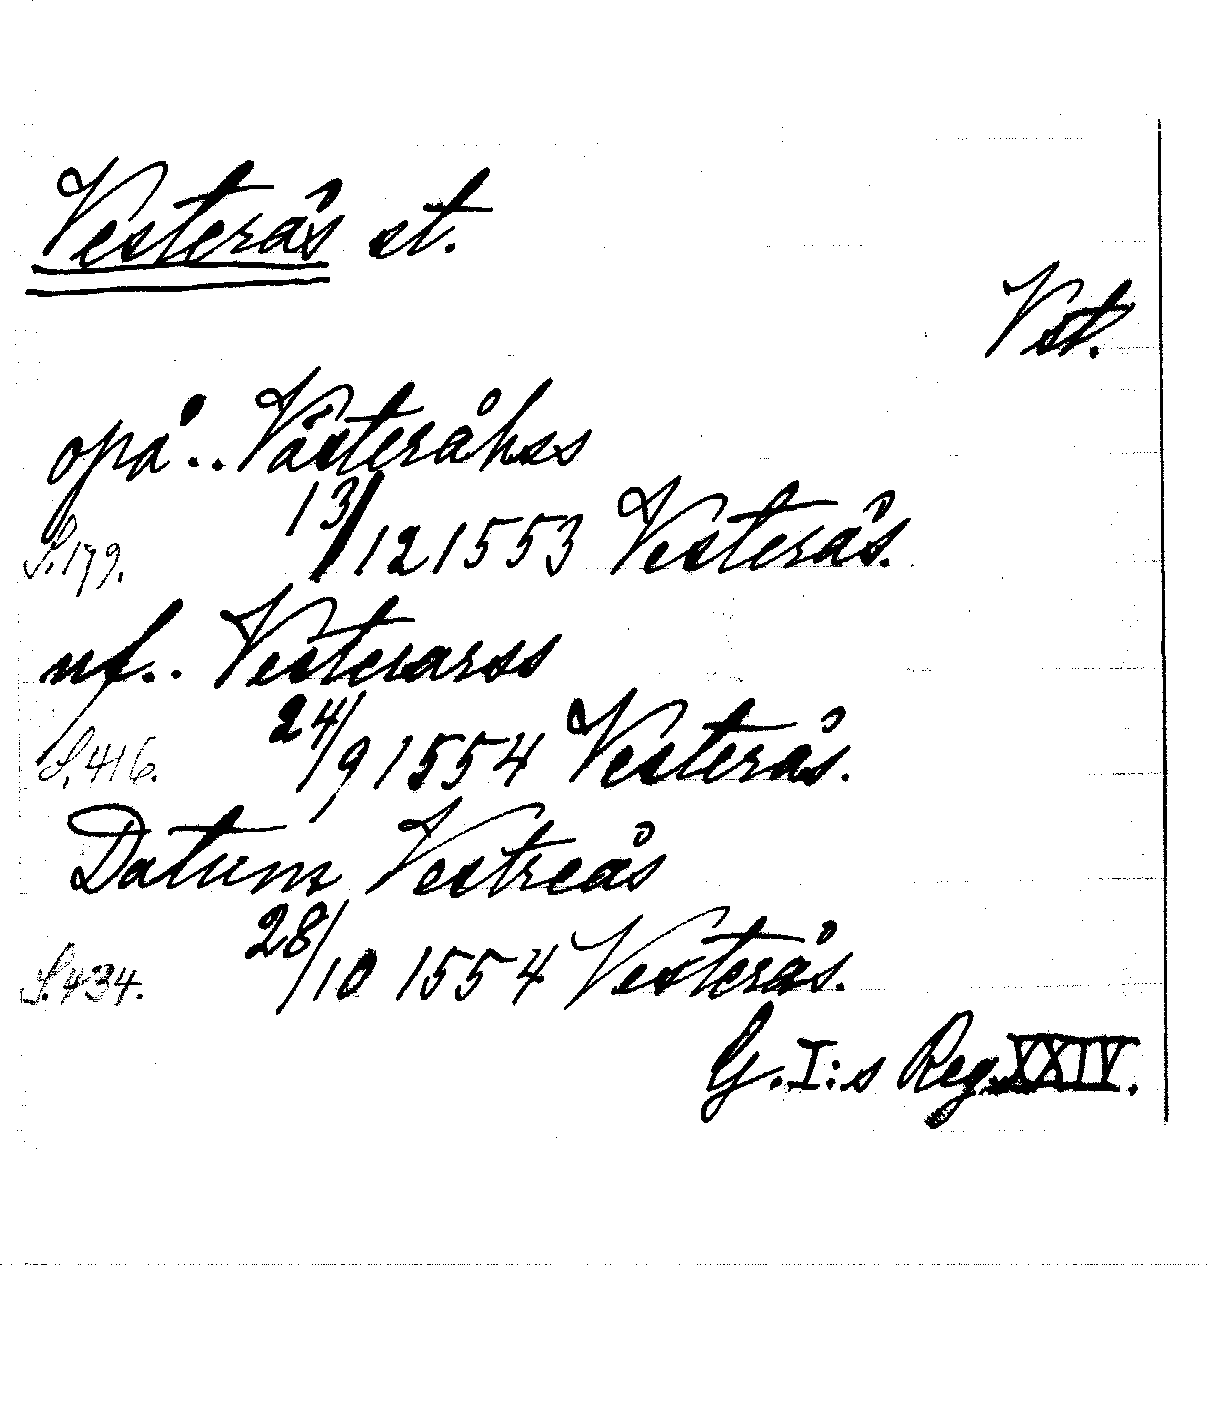 Vesterås st.
Vst.
opå .. Västeråhss
S. 179. 13/12 1553 Vesterås.
uf .. Vesterarss
S. 416. 24/9 1554 Vesterås.
Datum Vestreås
S. 434. 28/10 1554 Vesterås.
G. I:s Reg. XXIV.